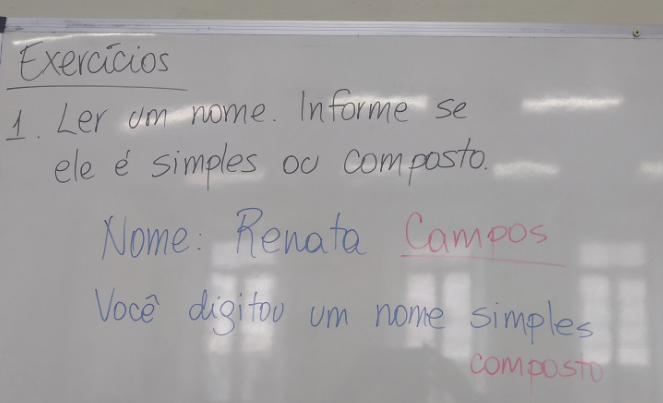 Exercícios
1. Ler um nome. Informe se
ele é simples ou composto.
Nome: Renata Campos
Você digitou um nome simples
composto